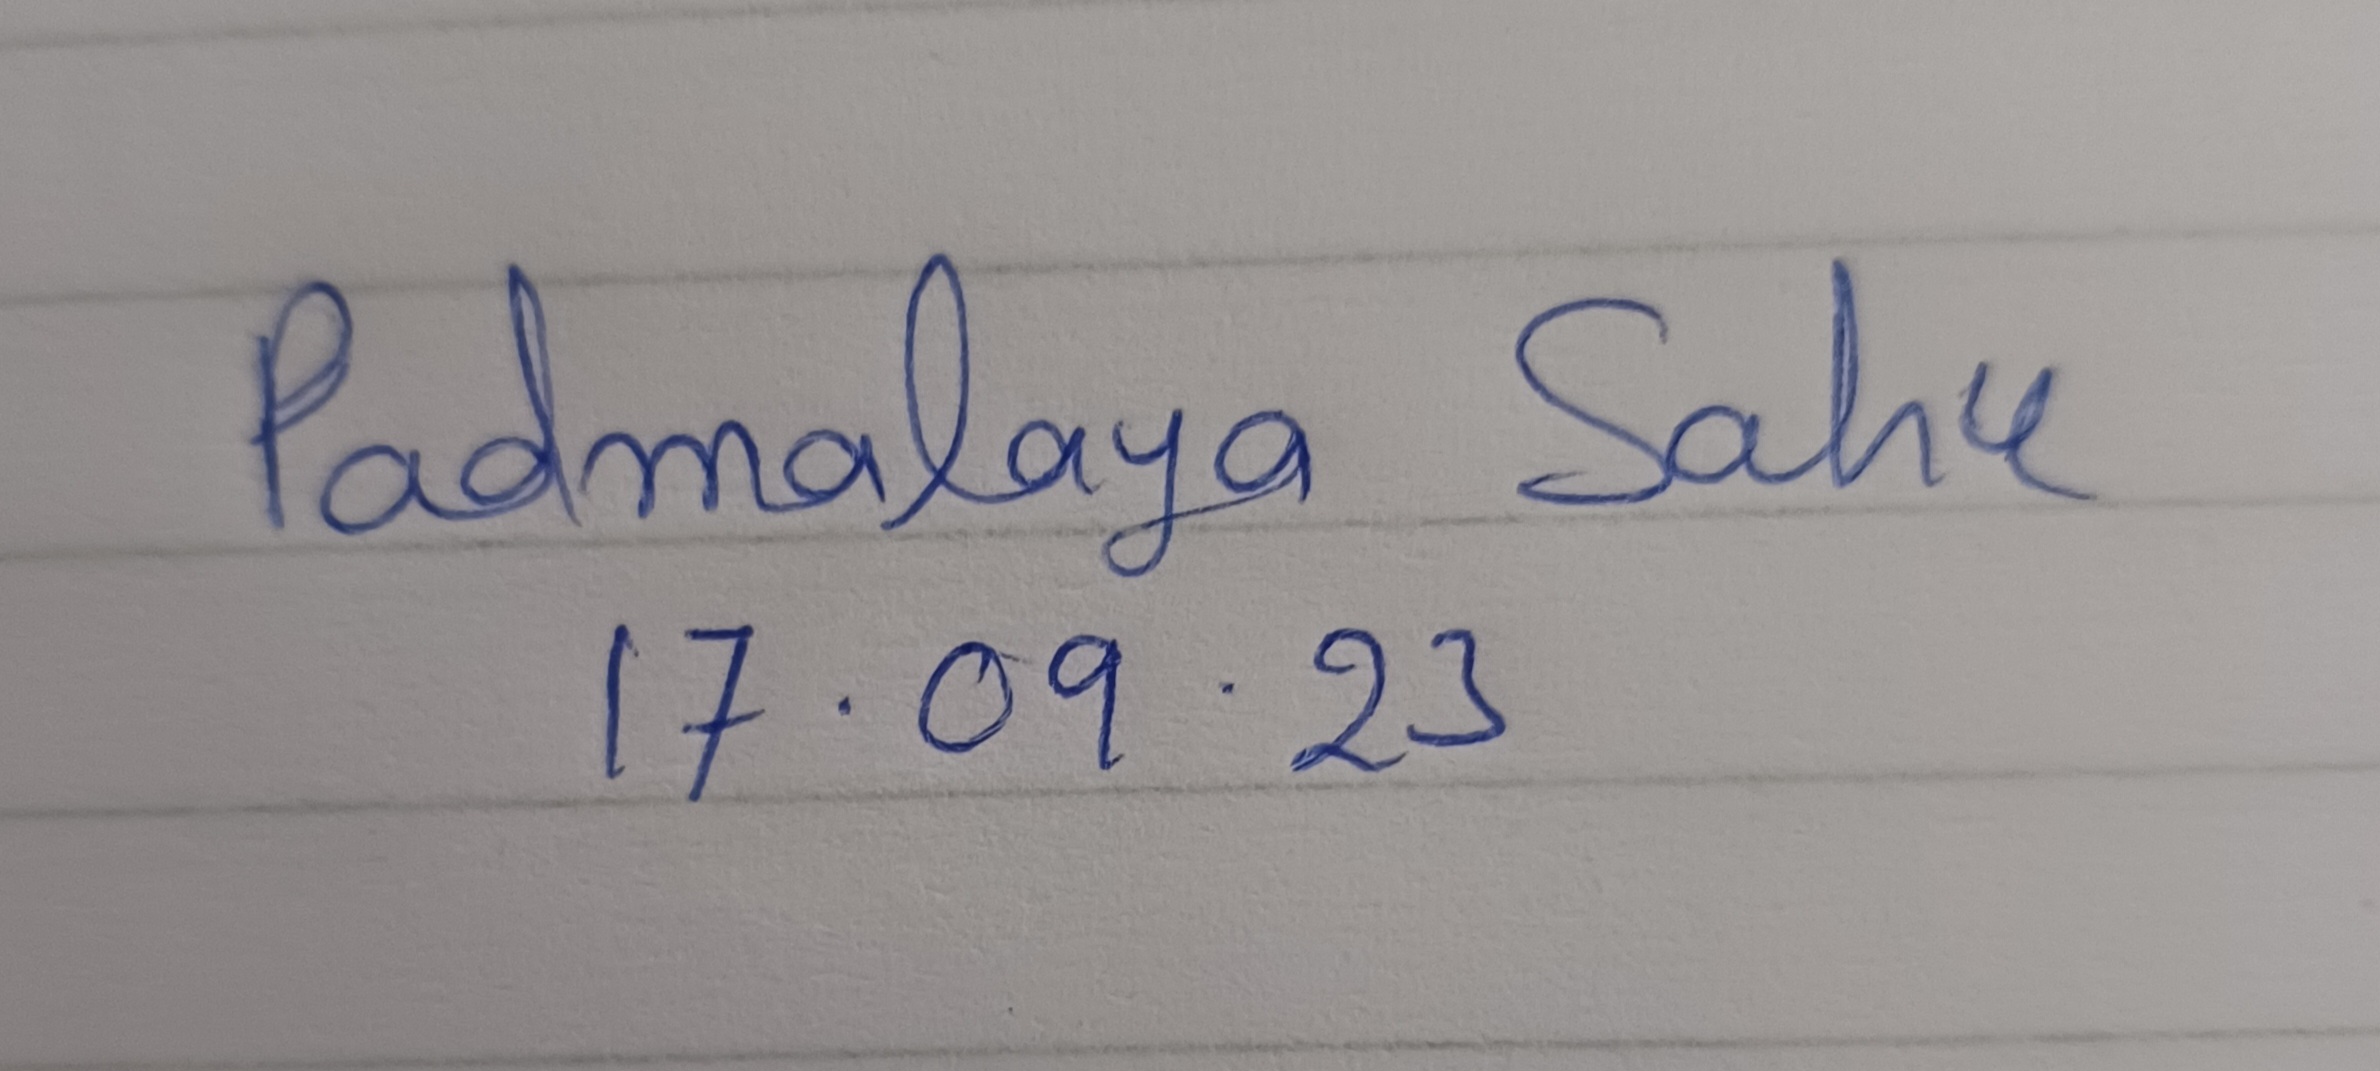 Padmalaya Sahu
17.09.23